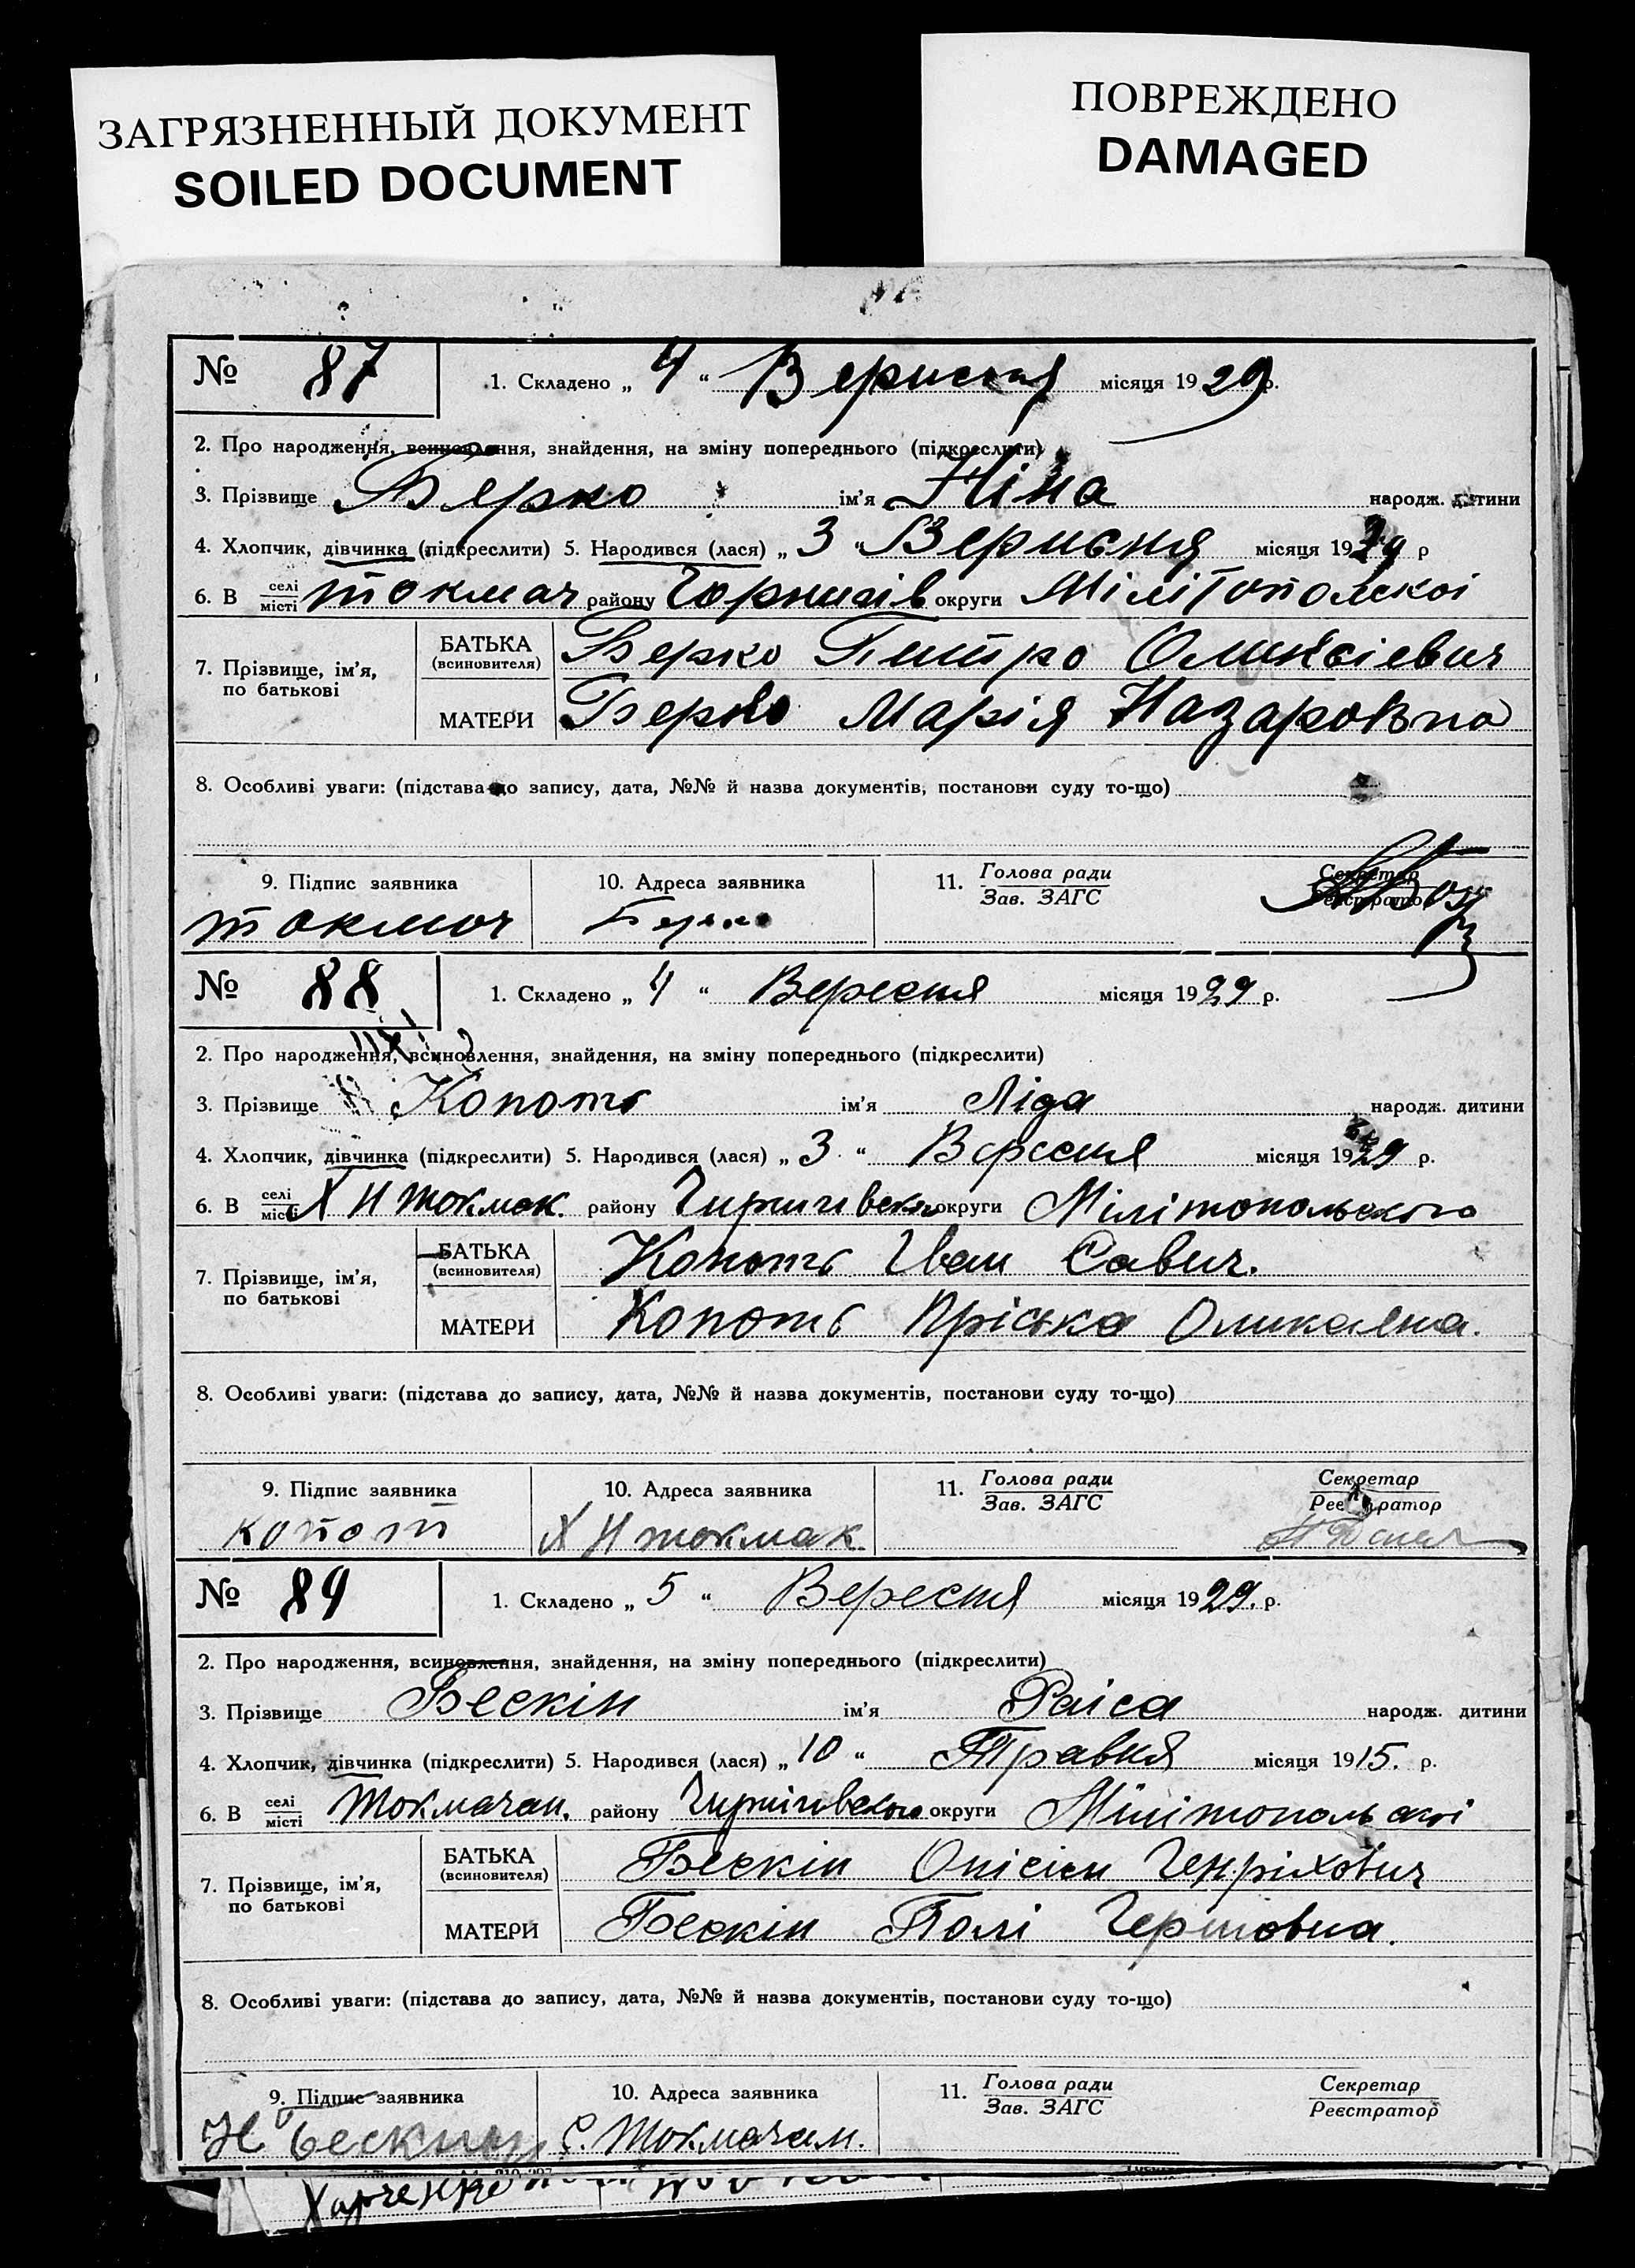 ЗАГРЯЗНЕННЫЙ ДОКУМЕНТ
SOILED DOCUMENT
ПОВРЕЖДЕНО
DAMAGED
№ 87 1. Складено „ 4 “ місяця 1929 р.
2. Про народження, всиновлення, знайдення, на зміну попереднього (підкреслити)
3. Прізвище Берко ім'я Ніна народж. дитини
4. Хлопчик, дівчинка (підкреслити) 5. Народився (лася) „ 3 “ місяця 1929 р
6. В селі/місті токмач району округи
7. Прізвище, ім'я, по батькові
БАТЬКА (всиновителя) Берко
МАТЕРИ Берко Марія Назаровна
8. Особливі уваги: (підстава до запису, дата, №№ й назва документів, постанови суду то-що)
9. Підпис заявника 10. Адреса заявника 11. Голова ради/Зав. ЗАГС Секретар/Реєстратор
токмач Берко
№ 88 1. Складено „ 4 “ Вересня місяця 1929 р.
2. Про народження, всиновлення, знайдення, на зміну попереднього (підкреслити)
3. Прізвище Копоть ім'я Ліда народж. дитини
4. Хлопчик, дівчинка (підкреслити) 5. Народився (лася) „ 3 “ Вересня місяця 1929 р.
6. В селі/місті Х Н токмак району округи Мілітопольского
7. Прізвище, ім'я, по батькові
БАТЬКА (всиновителя) Копоть Іван Савич.
МАТЕРИ Копоть Пріська
8. Особливі уваги: (підстава до запису, дата, №№ й назва документів, постанови суду то-що)
9. Підпис заявника 10. Адреса заявника 11. Голова ради/Зав. ЗАГС Секретар/Реєстратор
копот Х Н токмак
№ 89 1. Складено „ 5 “ Вересня місяця 1929. р.
2. Про народження, всиновлення, знайдення, на зміну попереднього (підкреслити)
3. Прізвище Бескін ім'я Раіса народж. дитини
4. Хлопчик, дівчинка (підкреслити) 5. Народився (лася) „ 10 “ Травня місяця 1915. р.
6. В селі/місті району округи Мілітопольскоі
7. Прізвище, ім'я, по батькові
БАТЬКА (всиновителя) Бескін Генріхович
МАТЕРИ Бескін Полі Гершовна.
8. Особливі уваги: (підстава до запису, дата, №№ й назва документів, постанови суду то-що)
9. Підпис заявника 10. Адреса заявника 11. Голова ради/Зав. ЗАГС Секретар/Реєстратор
Н Бескин с.